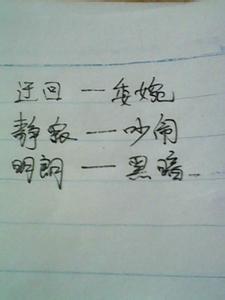 迂回 — 委婉
静寂 — 吵闹
明朗 — 黑暗